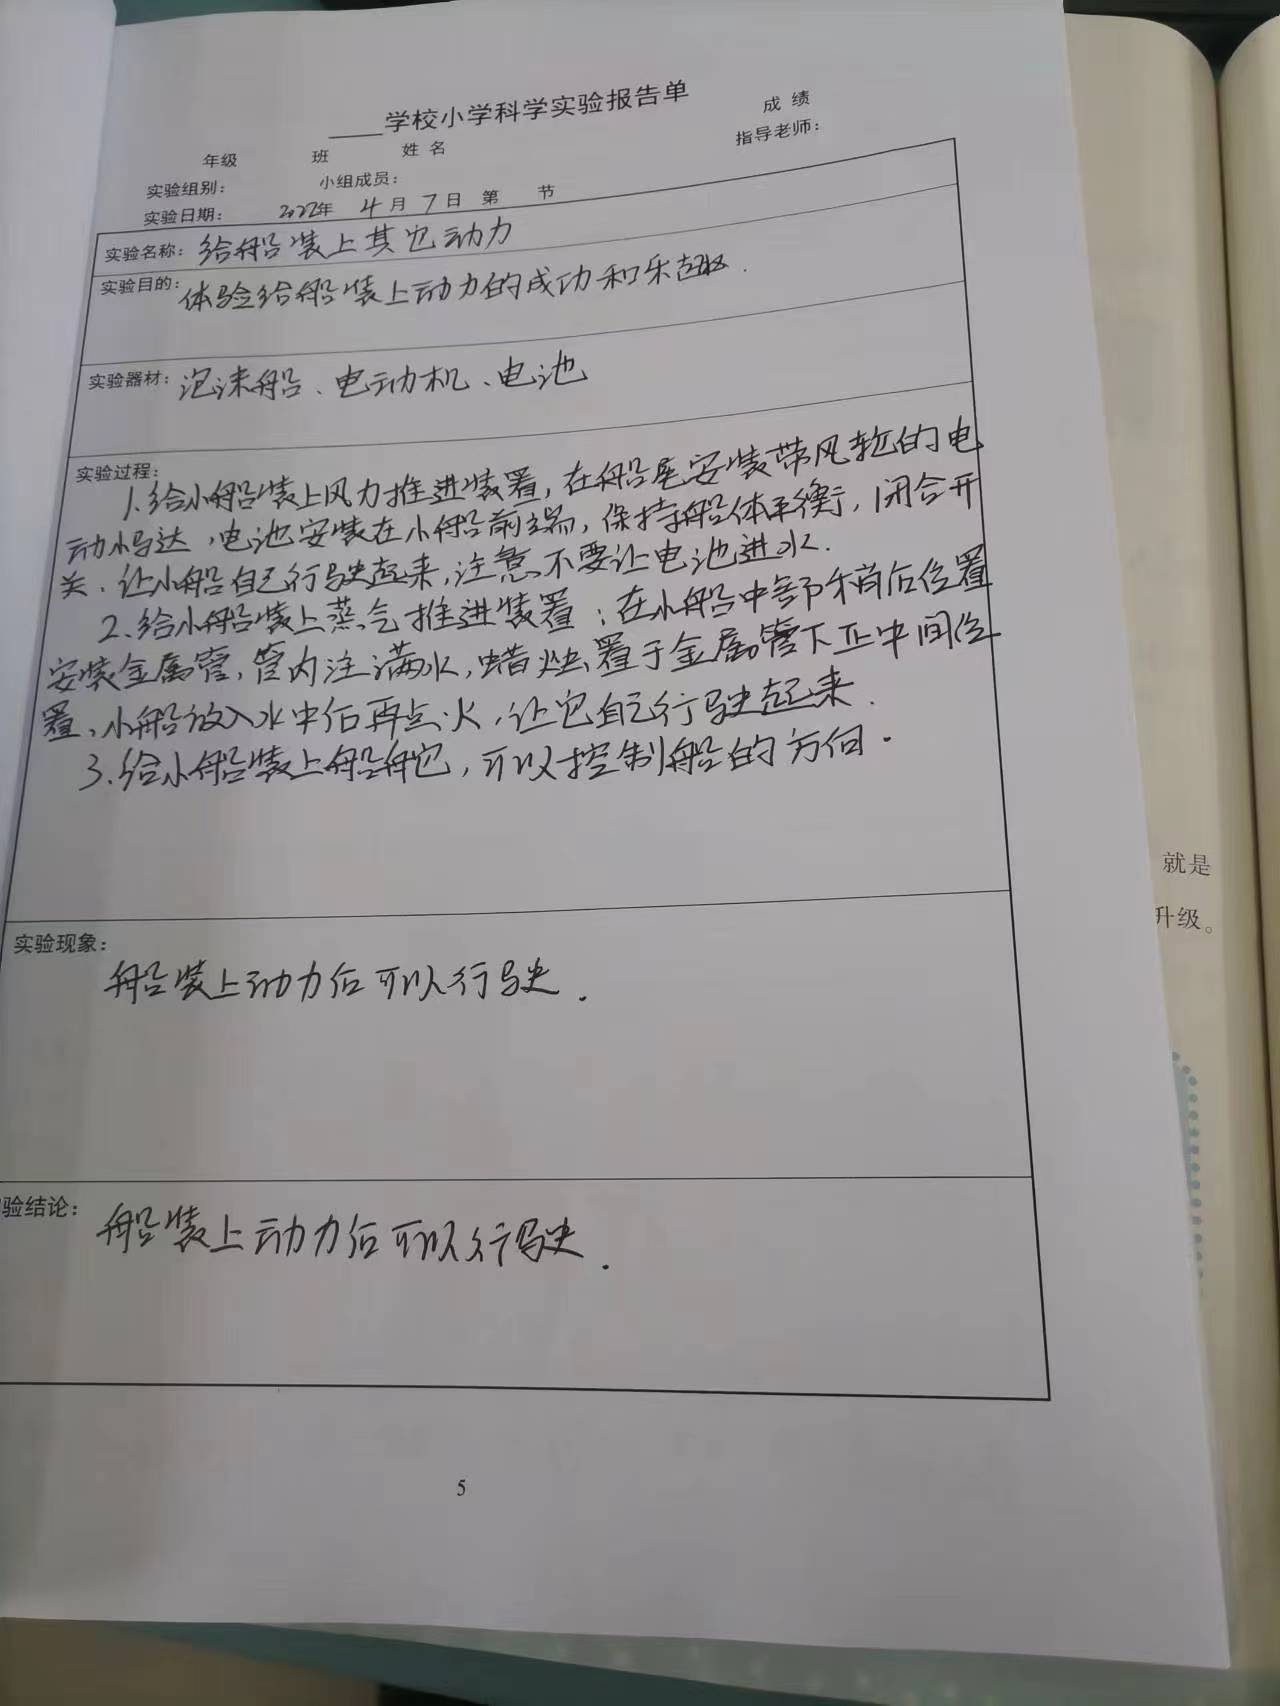 ____学校小学科学实验报告单
成 绩
年级 班 姓 名
指导老师：
实验组别： 小组成员：
实验日期： 2022年 4月 7日 第 节
实验名称：给船装上其它动力
实验目的：体验给船装上动力的成功和乐趣.
实验器材：泡沫船、电动机、电池
实验过程：
1.给小船装上风力推进装置,在船尾安装带风轮的电
动小马达,电池安装在小船前端,保持船体平衡,闭合开
关.让小船自己行驶起来,注意不要让电池进水.
2.给小船装上蒸气推进装置:在小船中部稍后位置
安装金属管,管内注满水,蜡烛置于金属管下正中间位
置,小船放入水中后再点火,让它自己行驶起来.
3.给小船装上船舵,可以控制船的方向.
实验现象：
船装上动力后可以行驶.
验结论：
船装上动力后可以行驶.
5
就是
升级。